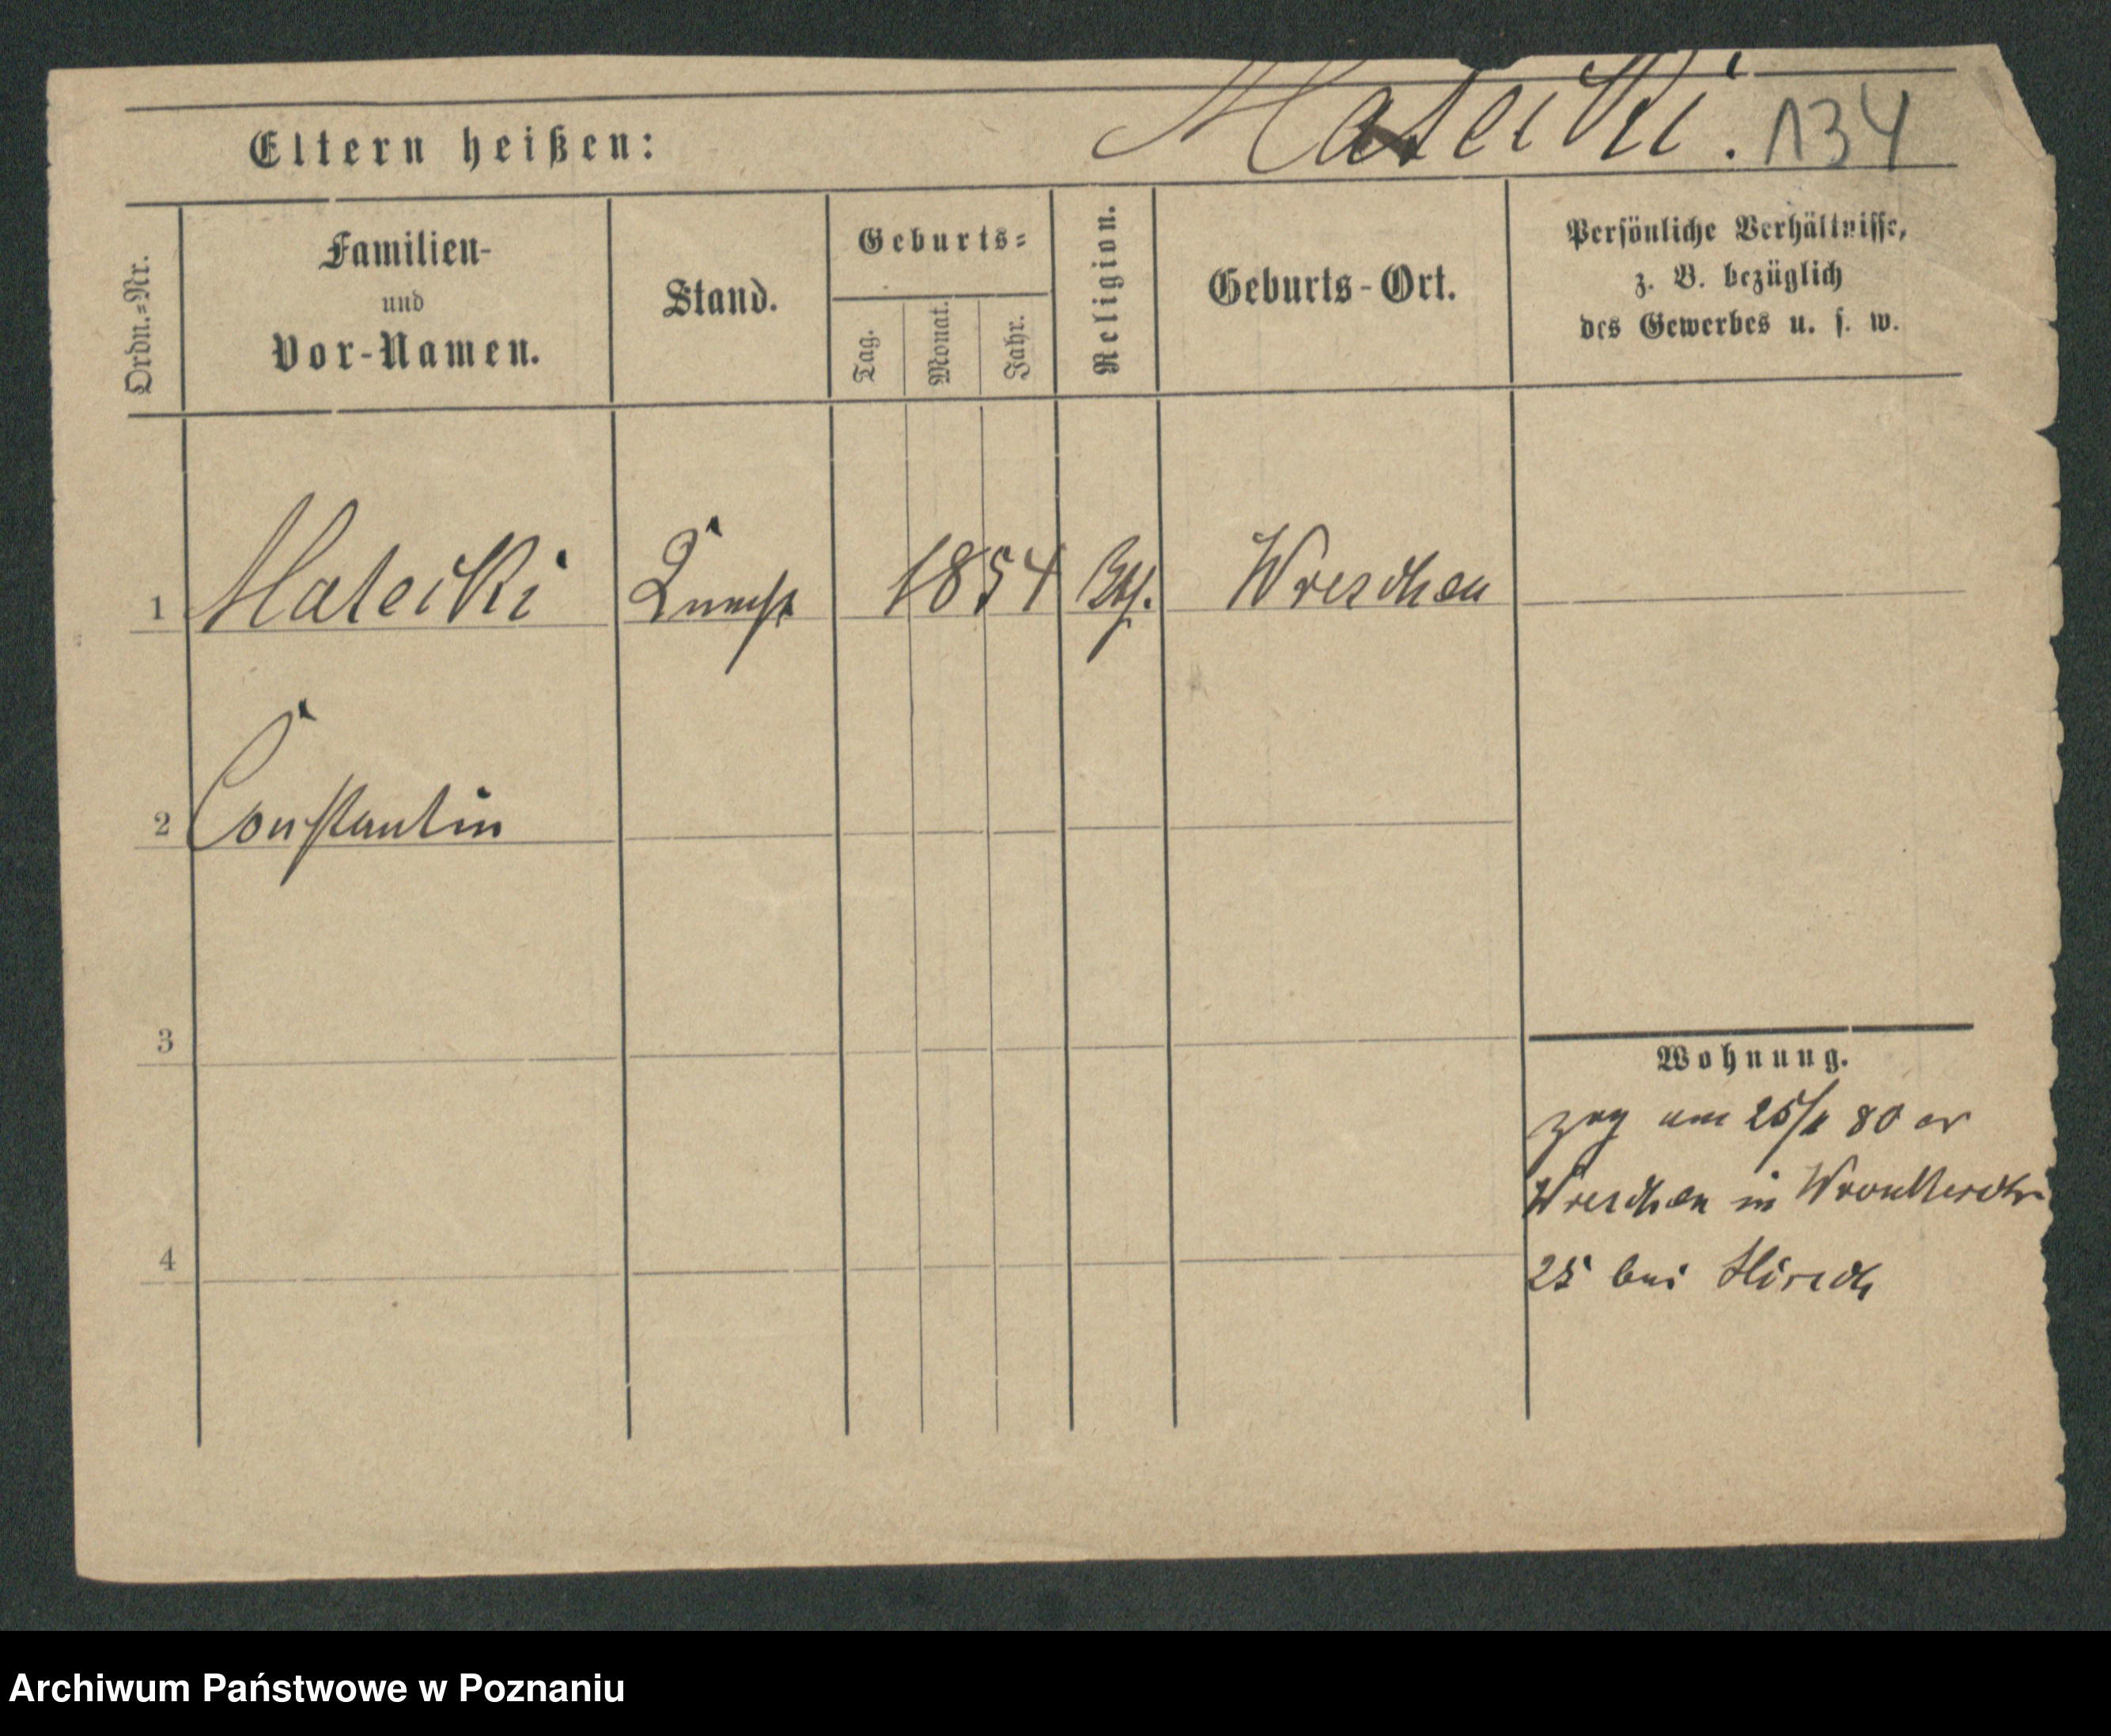 Mateicki. 134
Eltern heißen:
Ordn.=Nr.
Familien-
und
Vor-Namen.
Stand.
Geburts=
Tag.
Monat.
Jahr.
Religion.
Geburts-Ort.
Persönliche Verhältnisse,
z. B. bezüglich
des Gewerbes u. s. w.
1 Mateicki Knecht 1854 Kth. Wreschen
2 Constantin
3
4
Wohnung.
zog am 25/ 80 er
Wreschen in
25 bei Hirsch
Archiwum Państwowe w Poznaniu